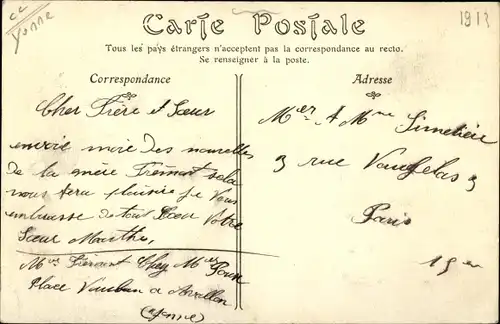 cc
Yonne
1913
Carte Postale
Tous les pays étrangers n'acceptent pas la correspondance au recto.
Se renseigner à la poste.
Correspondance
Adresse
Cher Frère et Sœur
envoie moie des nouvelles
de la mère Frémont sela
nous fera plaisire je vous
embrasse de tout Cœur Votre
Sœur Marthe,
Chez
Place Vauban a Avallon
(Yonne)
A Mme
3 rue Vaugelas 3
Paris
15 em